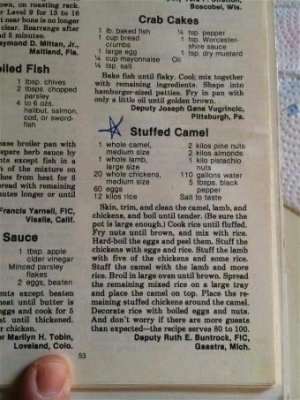 own, on roasting rack.
r Level 9 for 13 to 16
t near bone is no longer
clear. Rearrange after
d 5 minutes.
aymond D. Mitten, Jr.,
Maitland, Fla.
iled Fish
1 tbsp. chives
2 tbsps. chopped
parsley
4 to 6 ozs.
halibut, salmon,
cod, or sword-
fish
ase broiler pan with
epare herb sauce by
nts except fish in a
½ of the mixture on
hes from heat for 6
pread with remaining
utes longer or until
Francis Yarnell, FIC,
Visalia, Calif.
Sauce
1 tbsp. apple
cider vinegar
Minced parsley
flakes
2 eggs, beaten
ents except beaten
eat until butter is
ggs and cook for 5
at until thickened.
r chicken.
r Marilyn H. Tobin,
Loveland, Colo.
53
Boscobel, Wis.
Crab Cakes
1 lb. baked fish
1 cup bread
crumbs
1 large egg
¼ cup mayonnaise
½ tsp. salt
¼ tsp. pepper
1 tsp. Worcester-
shire sauce
1 tsp. dry mustard
Oil
Bake fish until flaky. Cook; mix together
with remaining ingredients. Shape into
hamburger-sized patties. Fry in pan with
only a little oil until golden brown.
Deputy Joseph Gene Vugrincic,
Pittsburgh, Pa.
Stuffed Camel
1 whole camel,
medium size
1 whole lamb,
large size
20 whole chickens,
medium size
60 eggs
12 kilos rice
2 kilos pine nuts
2 kilos almonds
1 kilo pistachio
nuts
110 gallons water
5 tbsps. black
pepper
Salt to taste
Skin, trim, and clean the camel, lamb, and
chickens, and boil until tender. (Be sure the
pot is large enough.) Cook rice until fluffed.
Fry nuts until brown, and mix with rice.
Hard-boil the eggs and peel them. Stuff the
chickens with eggs and rice. Stuff the lamb
with five of the chickens and some rice.
Stuff the camel with the lamb and more
rice. Broil in large oven until brown. Spread
the remaining mixed rice on a large tray
and place the camel on top. Place the re-
maining stuffed chickens around the camel.
Decorate rice with boiled eggs and nuts.
And don't worry if there are more guests
than expected—the recipe serves 80 to 100.
Deputy Ruth E. Buntrock, FIC,
Gaastra, Mich.